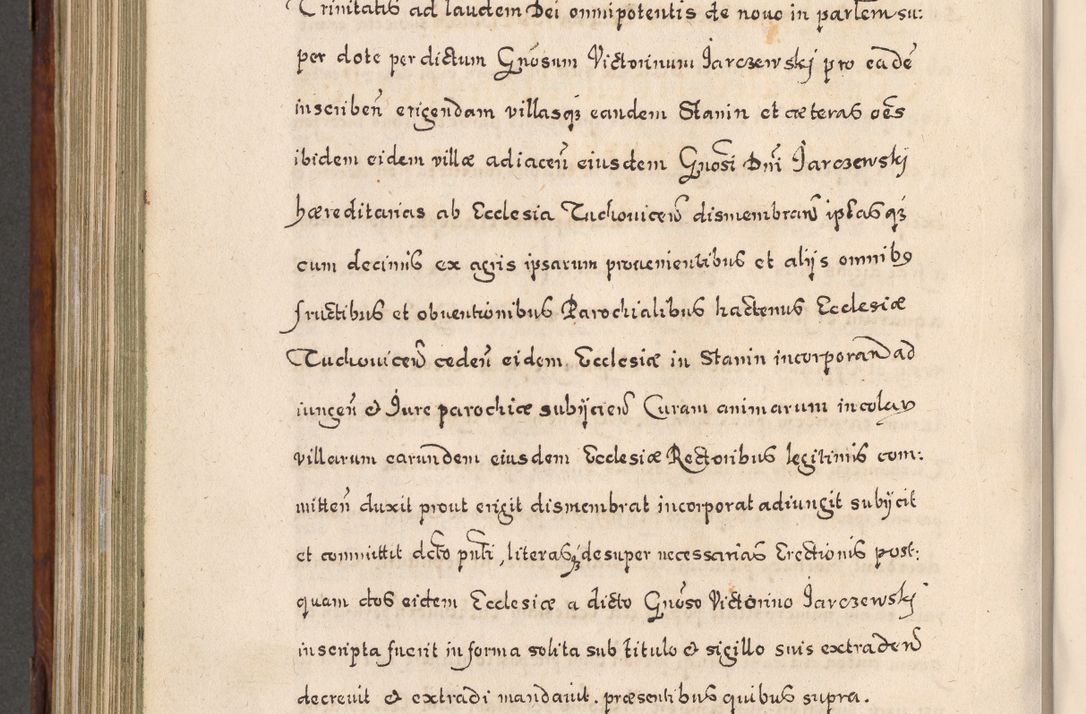 Trinitatis ad laudem Dei omnipotentis de nouo in partem su:
per dote per dictum Gnosum Victorinum Jarczewskj pro eadē
inscribeñ erigendam villasqꝫ eandem Stanin et cæteras oēs
ibidem eidem villæ adiaceñ eiusdem Gnosi Dñi Jarczewskj
hæreditarias ab Ecclesia Tuchouiceñ dismembrañ ipsasqꝫ
cum decimis ex agris ipsarum prouenientibus et alijs omnibꝰ
fructibus et obuentionibus Parochialibus hactenus Ecclesiæ
Tuchouiceñ cedeñ eidem Ecclesiæ in Stanin incorporand ad
iungeñ & Jure parochiæ subijcieñ Curam animarum incolaꝝ
villarum earundem eiusdem Ecclesiæ Rectoribus legitimis com:
mitteñ duxit prout erigit dismembrat incorporat adiungit subijcit
et committit dcto pñti, literasqꝫ desuper necessarias Erectionis post:
quam dos eidem Ecclesiæ a dicto Gnoso Victorino Jarczewskj
inscripta fuerit in forma solita sub titulo & sigillo suis extradeñ
decreuit & extradi mandauit. præsentibus quibus supra.